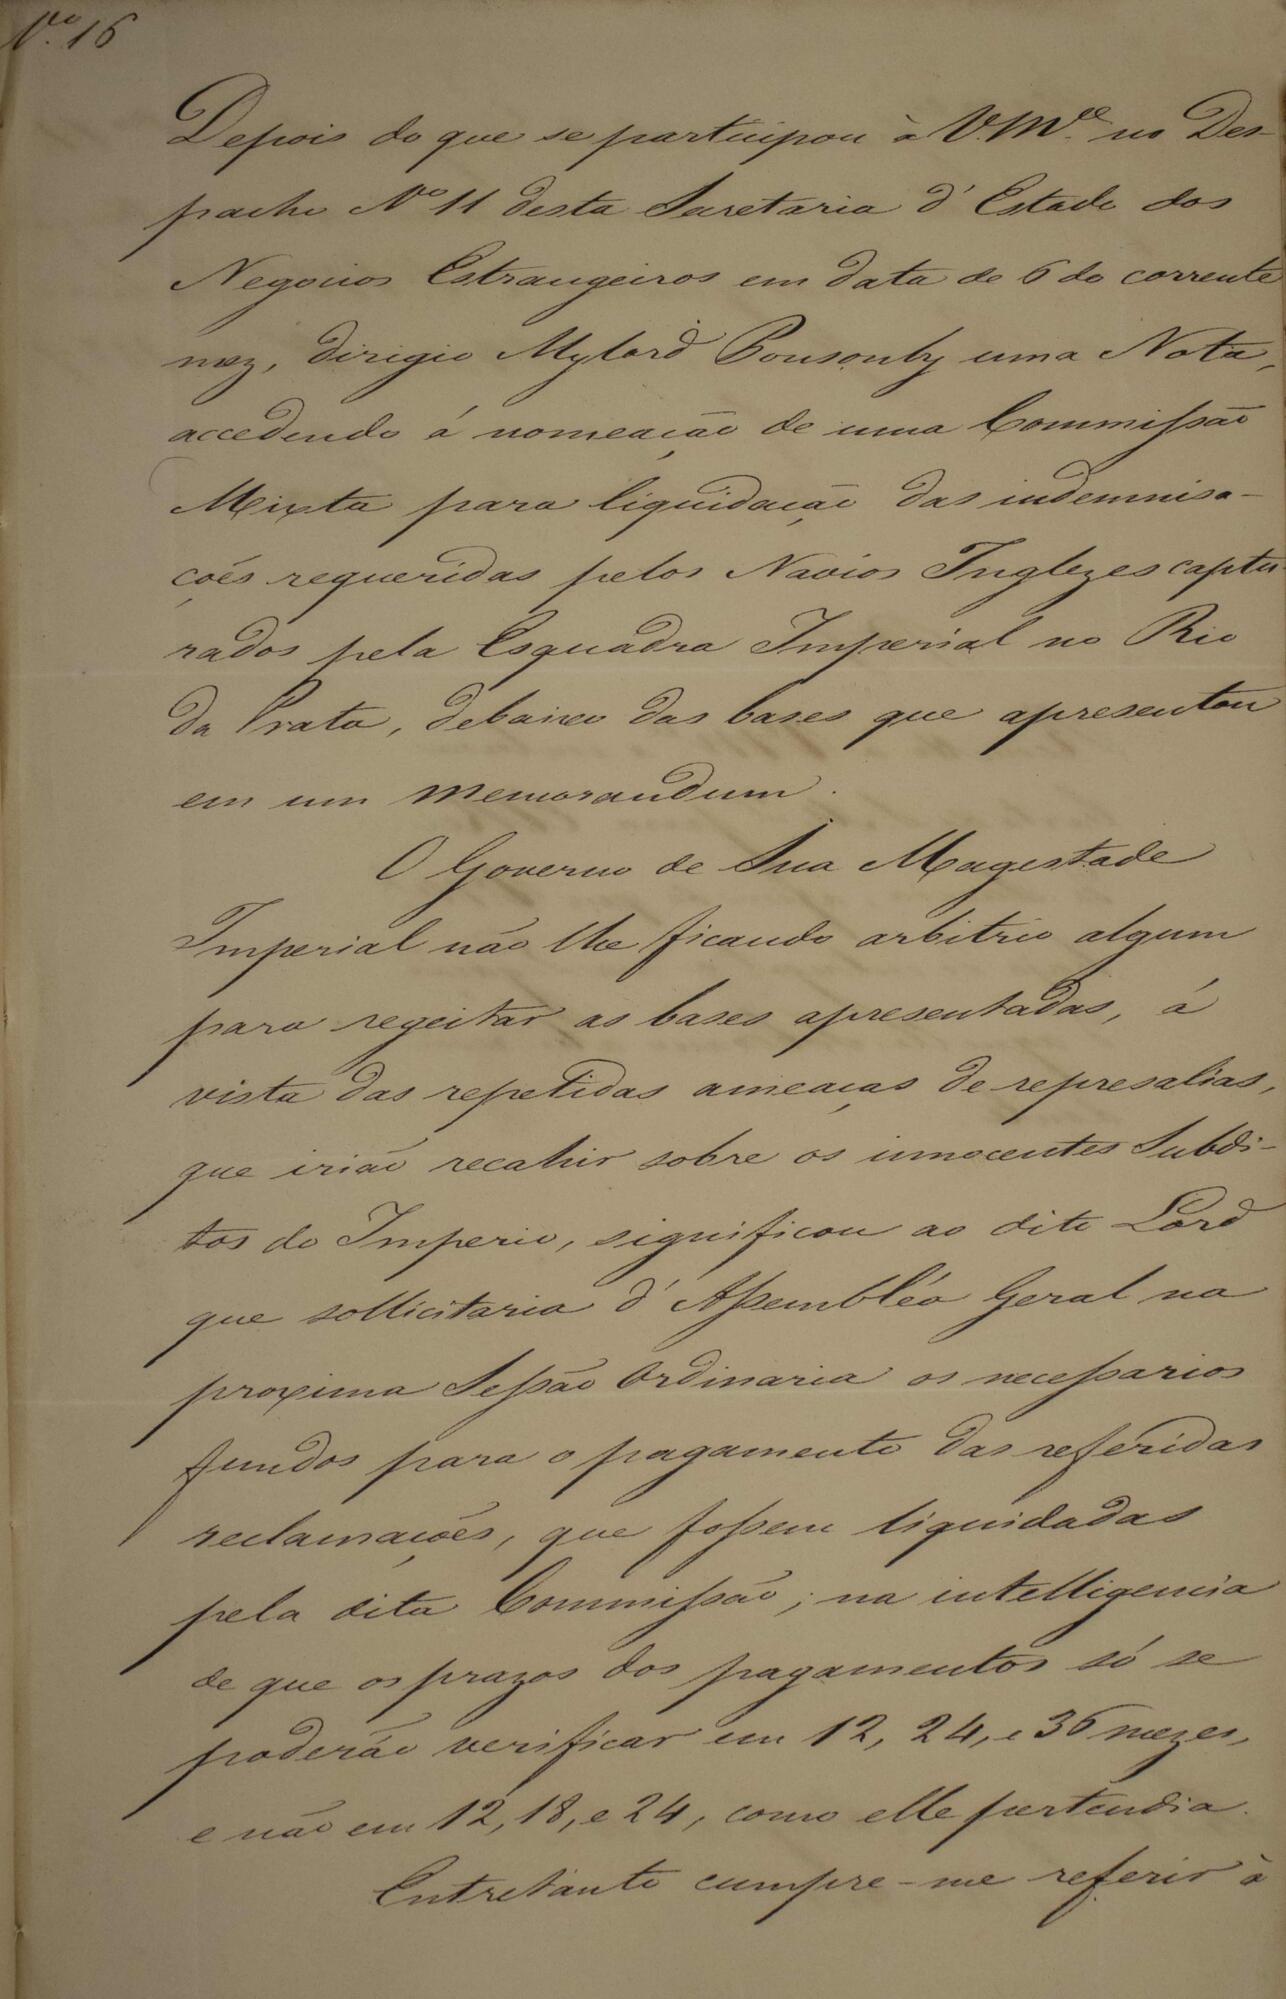 Nº 16
Depois do que se participou à V. Mce. no Des-
pacho Nº 11 desta Secretaria d'Estado dos
Negocios Estrangeiros em data de 6 do corrente
mez, dirigio Mylord Ponsonby uma Nota,
accedendo á nomeação de uma Commissão
Mixta para liquidação das indemnisa-
ções requeridas pelos Navios Inglezes captu-
rados pela Esquadra Imperial no Rio
da Prata, debaixo das bases que apresentou
em um memorandum.
O Governo de Sua Magestade
Imperial não lhe ficando arbitrio algum
para regeitar as bases apresentadas, á
vista das repetidas ameaças de represalias,
que irião recahir sobre os innocentes Subdi-
tos do Imperio, significou ao dito Lord
que sollicitaria d'Assembléa Geral na
proxima Sessão Ordinaria os necessarios
fundos para o pagamento das referidas
reclamações, que fossem liquidadas
pela dita Commissão; na intelligencia
de que os prazos dos pagamentos só se
poderão verificar em 12, 24, e 36 mezes,
e não em 12, 18, e 24, como elle pertendia.
Entretanto cumpre-me referir à